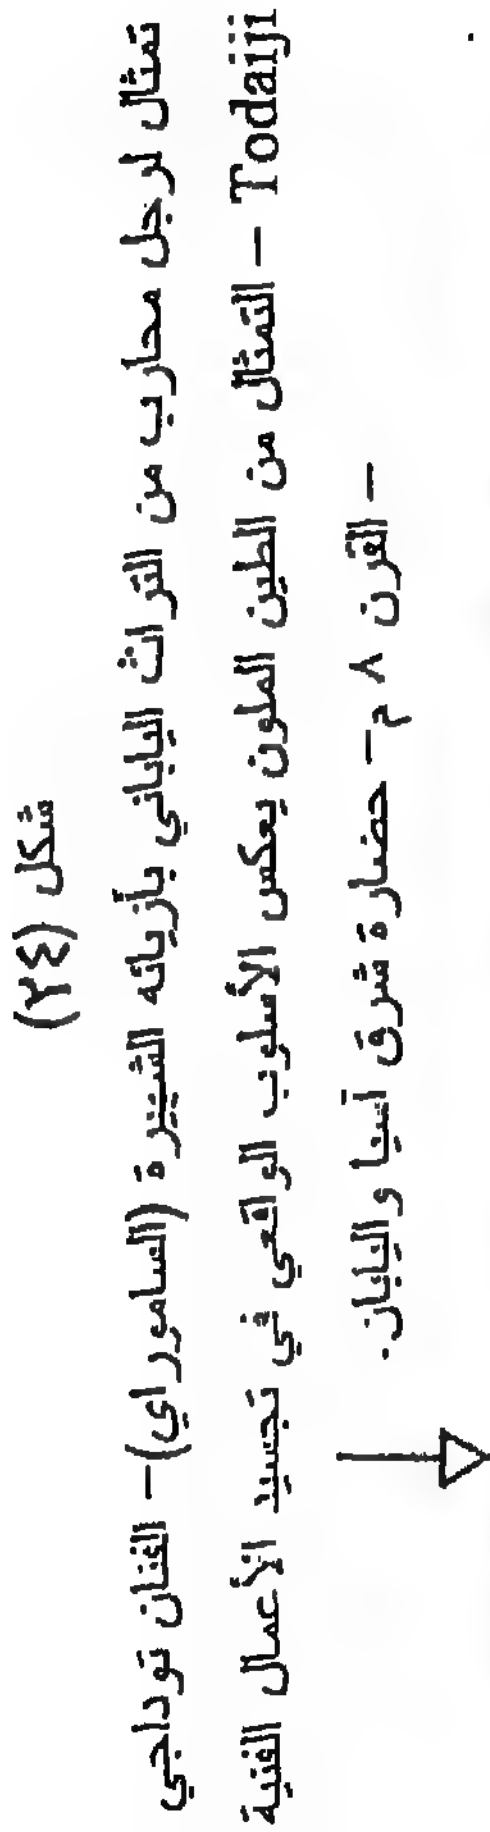 شكل (٢٤)
تمثال لرجل محارب من التراث الياباني بأزيائه الشهيرة (الساموراي) – الفنان توداجي
Todaiji – التمثال من الطين الملون يعكس الأسلوب الواقعي في تجسيد الأعمال الفنية
– القرن ٨ م – حضارة شرق آسيا واليابان.